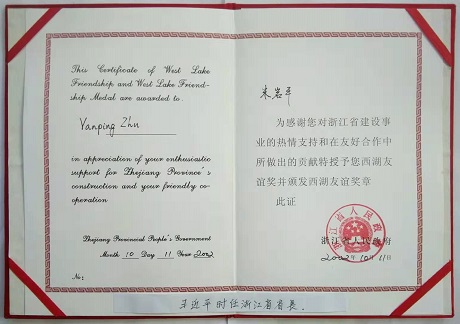 This Certificate of West Lake
Friendship and West Lake Friend-
ship Medal are awarded to.
Yanping Zhu
in appreciation of your enthusiastic
support for Zhejiang Province's
construction and your friendly co-
operation
Zhejiang Provincial People's Government
Month 10 Day 11 Year 2002
No:
朱岩平
为感谢您对浙江省建设事
业的热情支持和在友好合作中
所做出的贡献特授予您西湖友
谊奖并颁发西湖友谊奖章
此证
浙江省人民政府
2002年10月11日
浙江省人民政府
王近平时任浙江省省长.